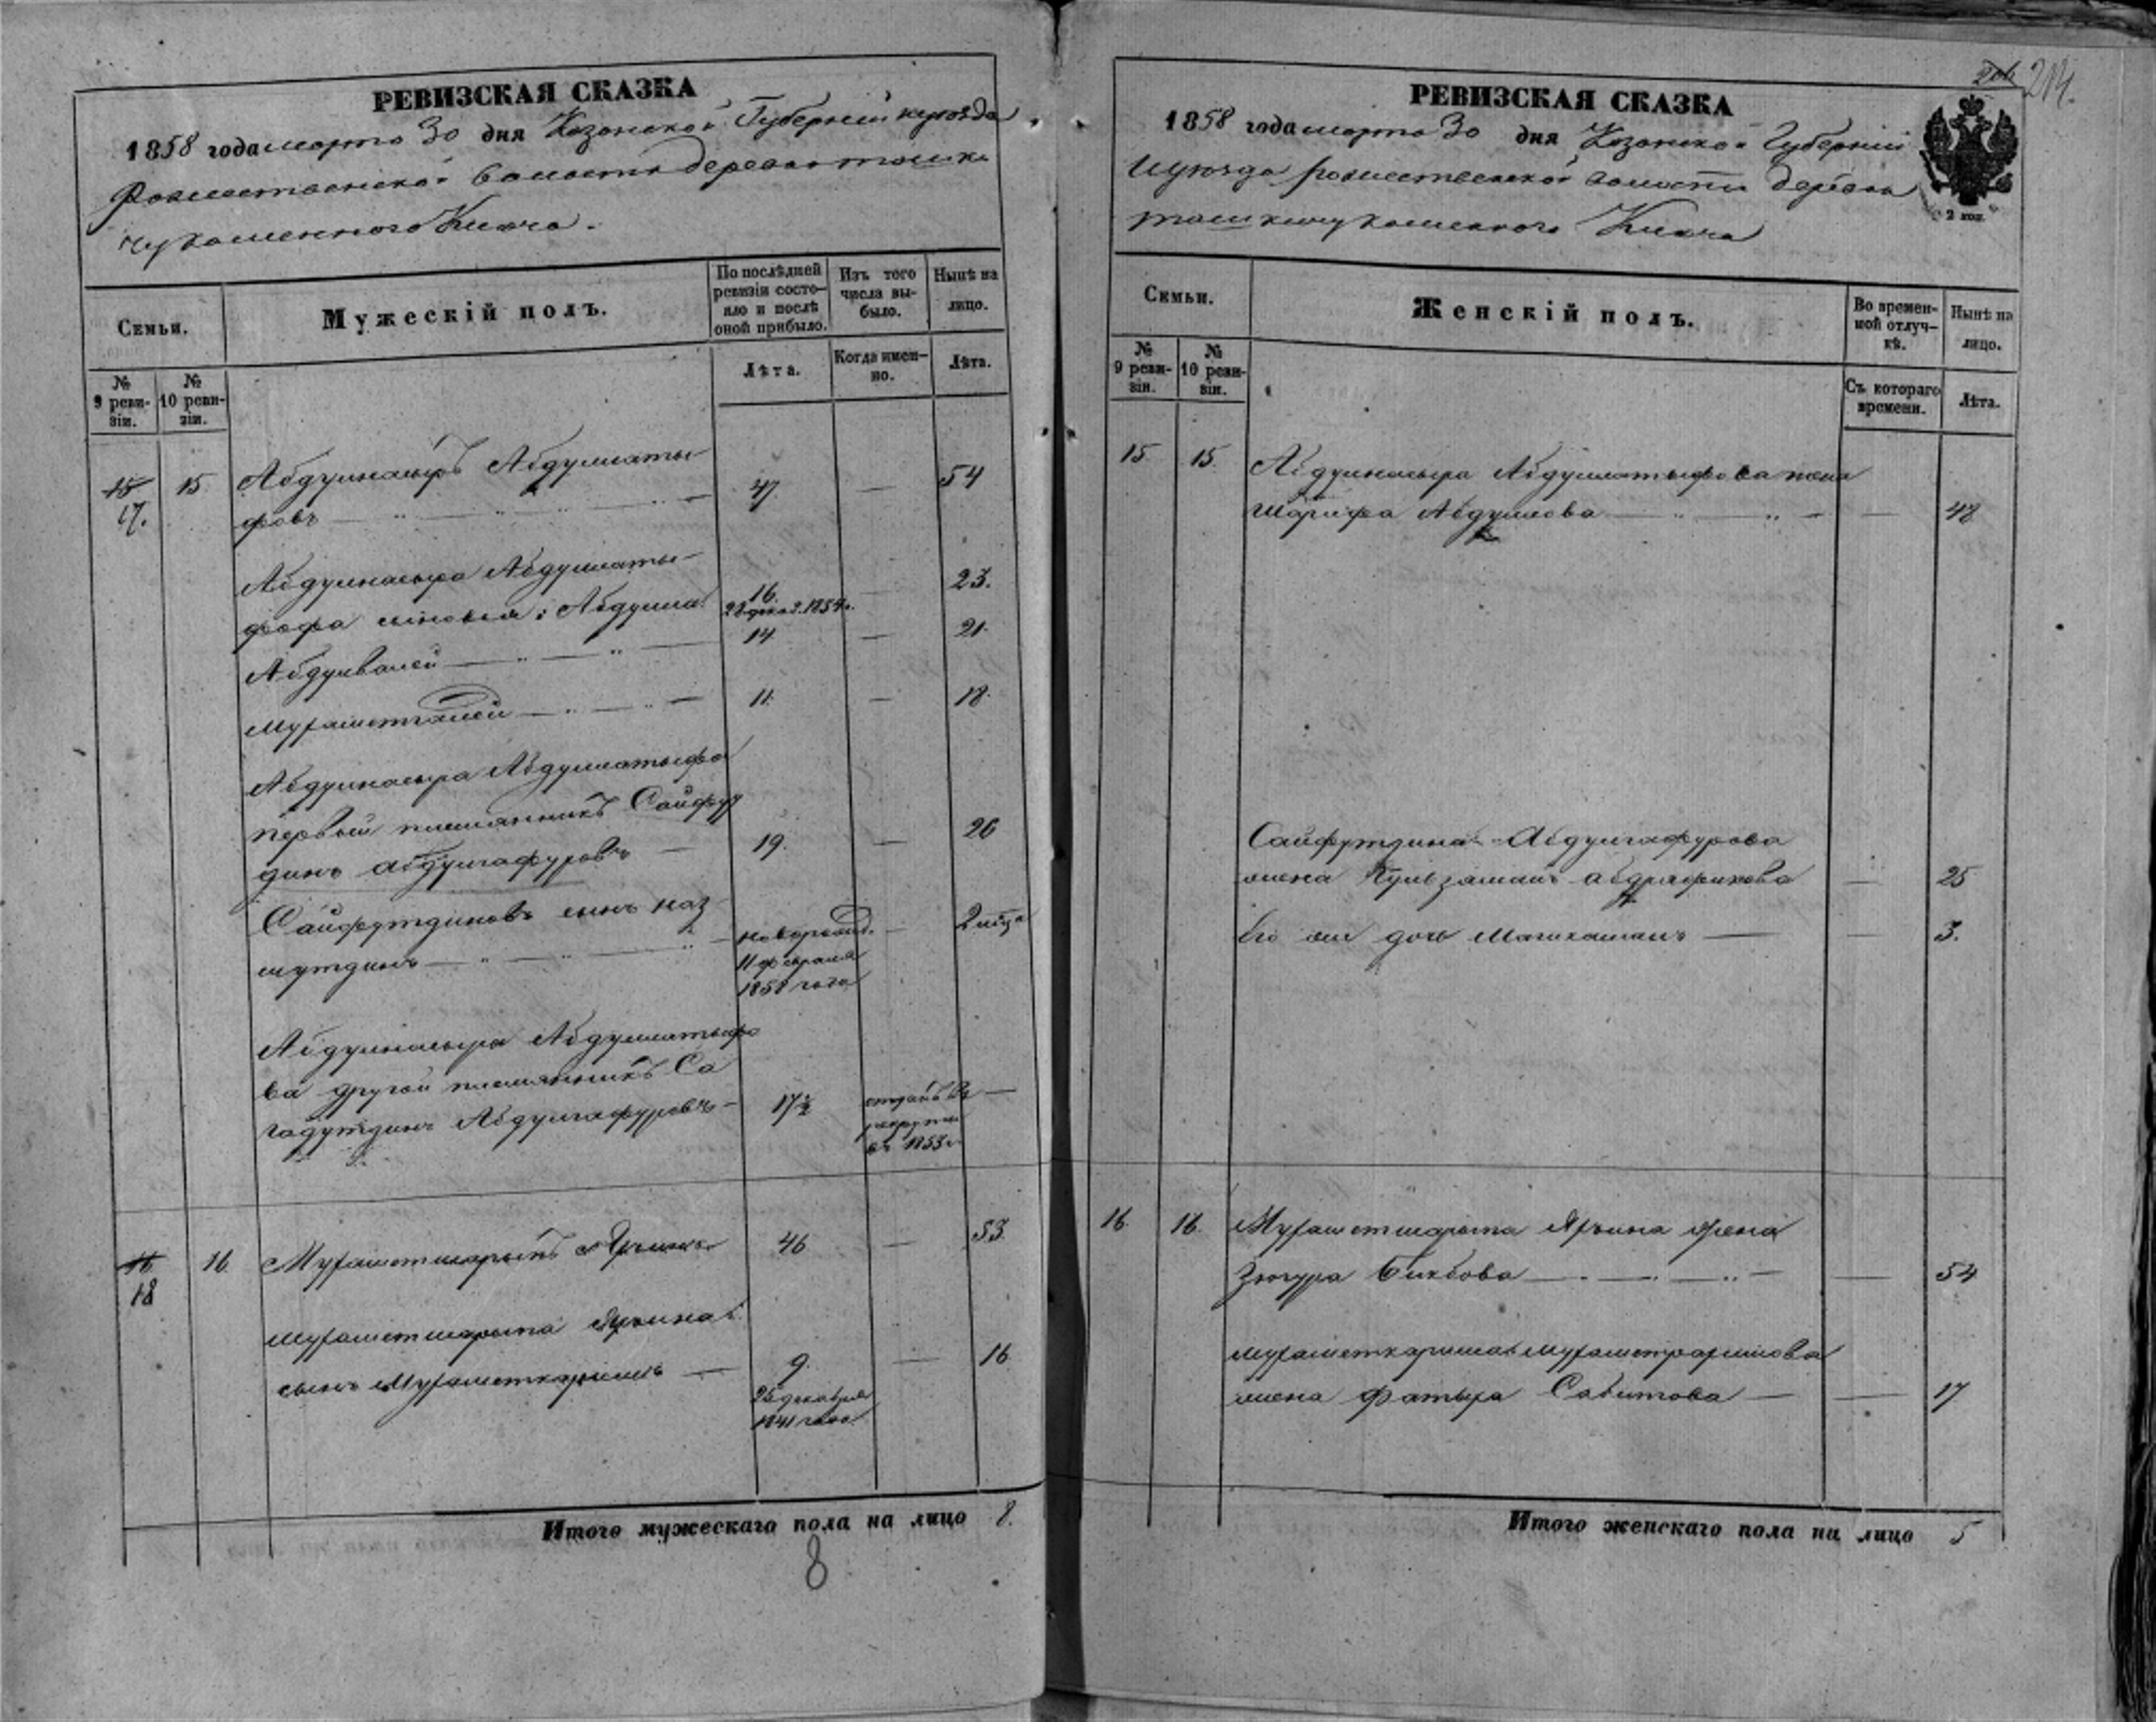 РЕВИЗСКАЯ СКАЗКА
1858 года марта 30 дня Казанской Губернии и уезда
Рождественской волости деревни ташки
чу каменного Ключа.
Семьи.
Мужескій полъ.
По послѣдней ревизіи состояло и послѣ оной прибыло.
Изъ того числа выбыло.
Нынѣ на лицо.
№ 9 ревизіи.
№ 10 ревизіи.
Лѣта.
Когда именно.
Лѣта.
15 15 Абдулнасыръ Абдуллаты-
17. фовъ 47 — 54
Абдулнасыра Абдуллаты-
фофа сыновья: Абдулла 16. 23.
1854
Абдулвалей 14 — 21
Мухаметгалей 11. — 18.
Абдулнасыра Абдуллатыфа
первый племянникъ Сайфут
динъ Абдулгафуровъ — 19. — 26
Сайфутдиновъ сынъ Наз
мутдинъ новорожд. — 2 мца
11 февраля
1858 года
Абдулнасыра Абдуллатыфо
ва другой племянникъ Са
гадутдинъ Абдулгафуровъ — 17½ отданъ въ —
рекруты
въ 1853 г.
16 16. Мухаметшарыпъ Яръинъ 46 — 53.
18
Мухаметшарыпа Яръина
сынъ Мухаметкаримъ — 9. — 16
25 декабря
1841 года
Итого мужескаго пола на лицо 8.
8
214.
РЕВИЗСКАЯ СКАЗКА
1858 года марта 30 дня Казанской Губерніи
И уезда рождественской волости деревни
ташкичу каменного Ключа
2 коп.
Семьи.
Женскій полъ.
Во временной отлучкѣ.
Нынѣ на лицо.
№ 9 ревизіи.
№ 10 ревизіи.
Съ котораго времени.
Лѣта.
15 15. Абдулнасыра Абдуллатыфова жена
Шарифа Абдуллова — 48
Сайфутдина Абдулгафурова
жена Гульзаманъ Абдрафикова — 25
Его же дочь — 3.
16. 16. Мухаметшарыпа Яръина жена
Зюгура Бикбова — 54
Мухаметкарима Мухаметшарипова
жена Фатыра Сабитова — 17
Итого женскаго пола на лицо 5